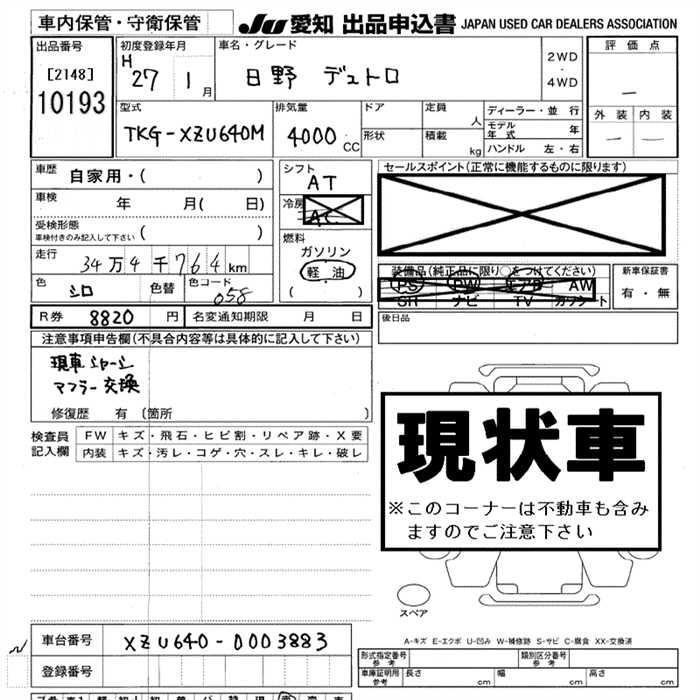 車内保管・守衛保管
JU 愛知 出品申込書 JAPAN USED CAR DEALERS ASSOCIATION
出品番号
[2148]
10193
初度登録年月
H 27 1 月
車名・グレード
日野 デュトロ
2WD
・
4WD
評価点
—
外装 内装
— —
型式
TKG-XZU640M
排気量
4000 CC
ドア
形状
定員
人
積載
kg
ディーラー・並行
モデル年式 年
ハンドル 左・右
車歴
自家用・( )
車検
年 月( 日)
受検形態
車検付きのみ記入して下さい ( )
走行
34万4千764km
色
シロ
色替
色コード
058
シフト
AT
冷房
AC
燃料
ガソリン
軽油
( )
セールスポイント(正常に機能するものに限ります)
装備品(純正品に限り○をつけてください)
PS PW エアB AW
SR ナビ TV カワシート
新車保証書
有・無
R券 8820 円
名変通知期限 月 日
後日品
注意事項申告欄(不具合内容等は具体的に記入して下さい)
現車シャーシ
マフラー交換
修復歴 有 [箇所 ]
検査員
記入欄
FW キズ・飛石・ヒビ割・リペア跡・X要
内装 キズ・汚レ・コゲ・穴・スレ・キレ・破レ
現状車
※このコーナーは不動車も含み
ますのでご注意下さい
スペア
A-キズ E-エクボ U-凹み W-補修跡 S-サビ C-腐食 XX-交換済
車台番号
XZU640-0003883
登録番号
形式指定番号
参考
類別区分番号
参考
車庫証明用
参考
長さ cm 幅 cm 高さ cm